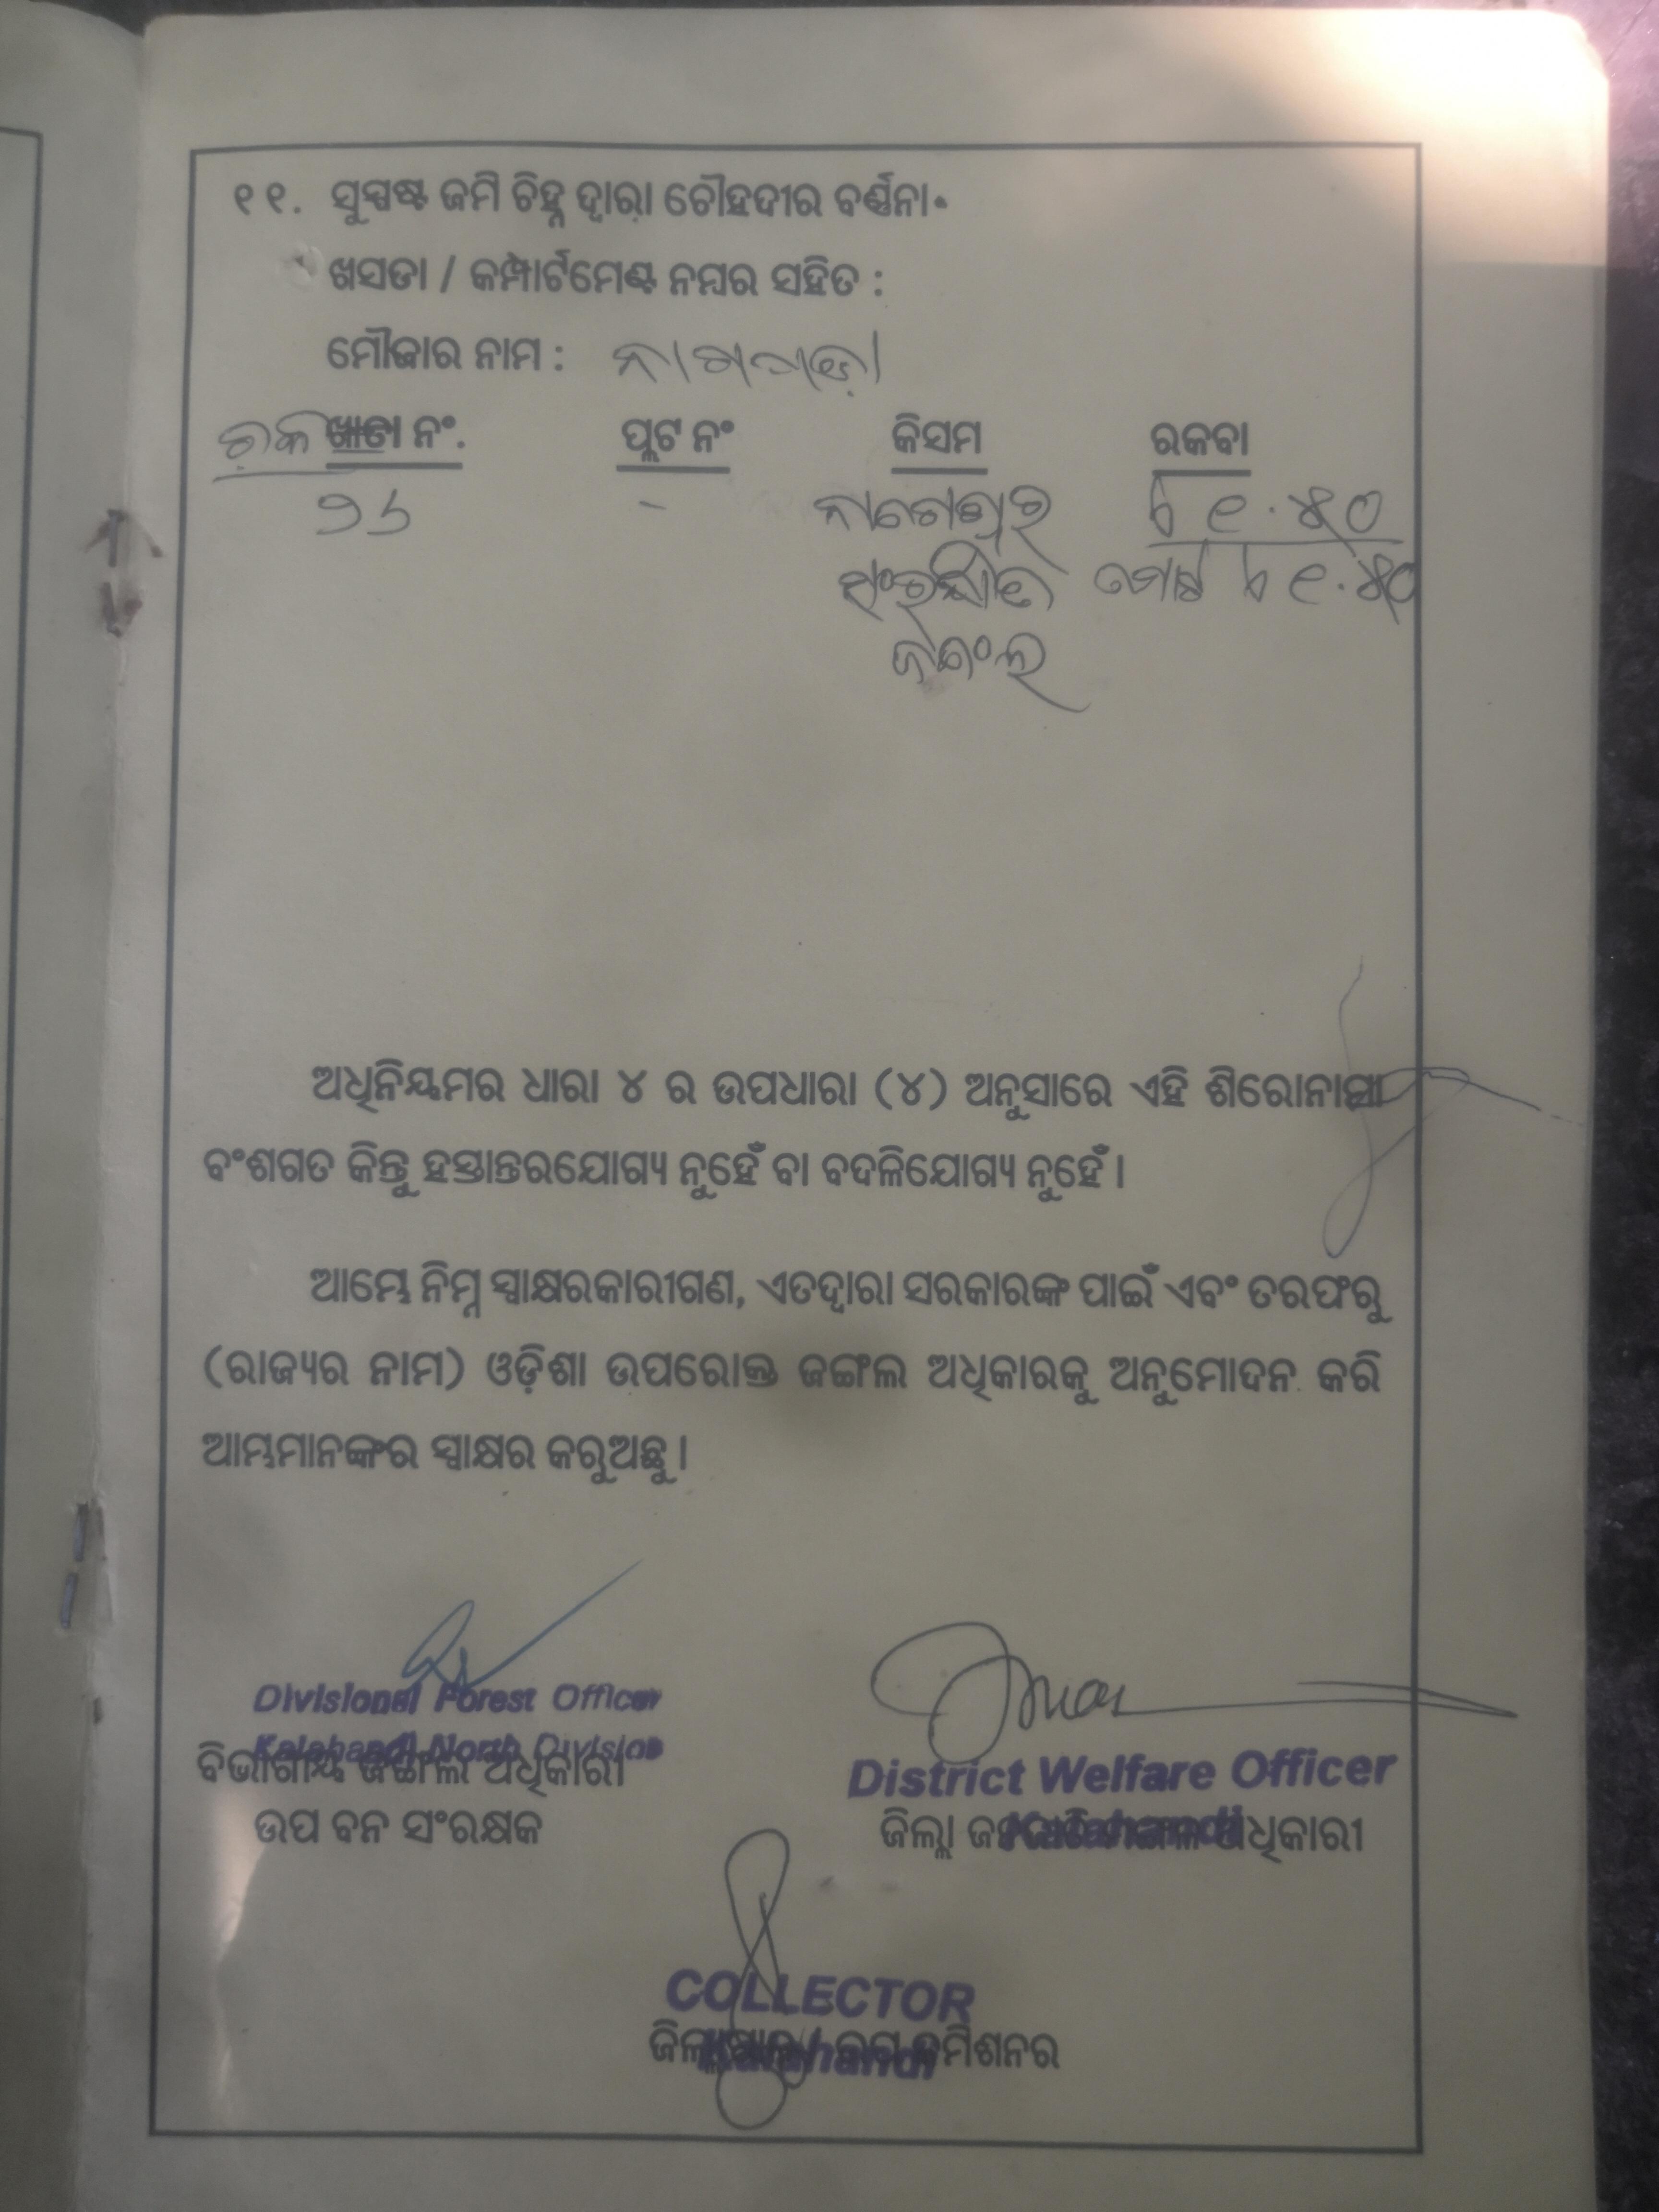 ୧୧. ସୁସ୍ପଷ୍ଟ ଜମି ଚିହ୍ନ ଦ୍ୱାରା ଚୌହଦୀର ବର୍ଣ୍ଣନା.
ଖସଡା / କମ୍ପାର୍ଟମେଣ୍ଟ ନମ୍ବର ସହିତ :
ମୌଜାର ନାମ :
ଖାତା ନଂ. ପ୍ଲଟ ନଂ କିସମ ରକବା
୨୬ -
ସଂରକ୍ଷିତ ମୋଟ
ଜଗଂଲ
ଅଧିନିୟମର ଧାରା ୪ ର ଉପଧାରା (୪) ଅନୁସାରେ ଏହି ଶିରୋନାମା
ବଂଶଗତ କିନ୍ତୁ ହସ୍ତାନ୍ତରଯୋଗ୍ୟ ନୁହେଁ ବା ବଦଳିଯୋଗ୍ୟ ନୁହେଁ ।
ଆମ୍ଭେ ନିମ୍ନ ସ୍ୱାକ୍ଷରକାରୀଗଣ, ଏତଦ୍ୱାରା ସରକାରଙ୍କ ପାଇଁ ଏବଂ ତରଫରୁ
(ରାଜ୍ୟର ନାମ) ଓଡ଼ିଶା ଉପରୋକ୍ତ ଜଙ୍ଗଲ ଅଧିକାରକୁ ଅନୁମୋଦନ କରି
ଆମ୍ଭମାନଙ୍କର ସ୍ୱାକ୍ଷର କରୁଅଛୁ ।
Divisional Forest Officer
Kalahandi North Division
ବିଭାଗୀୟ ଜଙ୍ଗଲ ଅଧିକାରୀ
ଉପ ବନ ସଂରକ୍ଷକ
District Welfare Officer
Kalahandi
ଜିଲ୍ଲା ଅଧିକାରୀ
COLLECTOR
Kalahandi
କମିଶନର